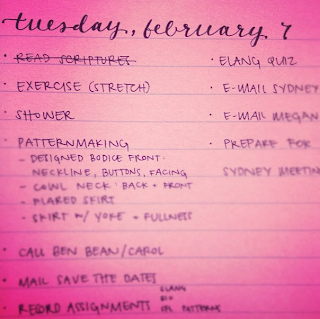 tuesday, february 7
· READ SCRIPTURES
· EXERCISE (STRETCH)
· SHOWER
· PATTERNMAKING
- DESIGNED BODICE FRONT:
NECKLINE, BUTTONS, FACING
- COWL NECK: BACK + FRONT
- FLARED SKIRT
- SKIRT W/ YOKE + FULLNESS
· CALL BEN BEAN/CAROL
· MAIL SAVE THE DATES
· RECORD ASSIGNMENTS
ELANG
BIO
PATTERNS
· ELANG QUIZ
· E-MAIL SYDNEY
· E-MAIL MEGAN
· PREPARE FOR
SYDNEY